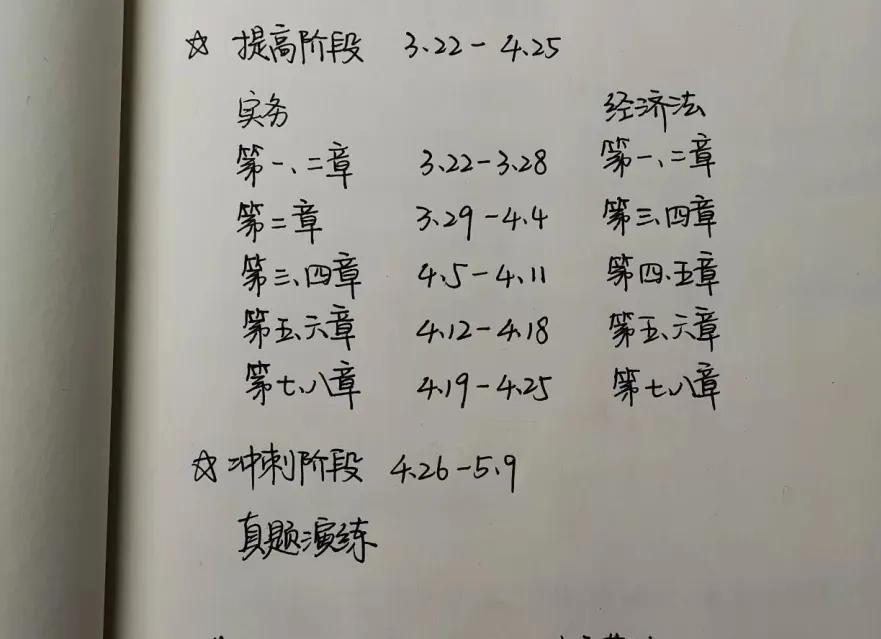 ☆ 提高阶段 3.22-4.25
实务 经济法
第一、二章 3.22-3.28 第一、二章
第二章 3.29-4.4 第三、四章
第三、四章 4.5-4.11 第四、五章
第五、六章 4.12-4.18 第五、六章
第七、八章 4.19-4.25 第七、八章
☆ 冲刺阶段 4.26-5.9
真题演练